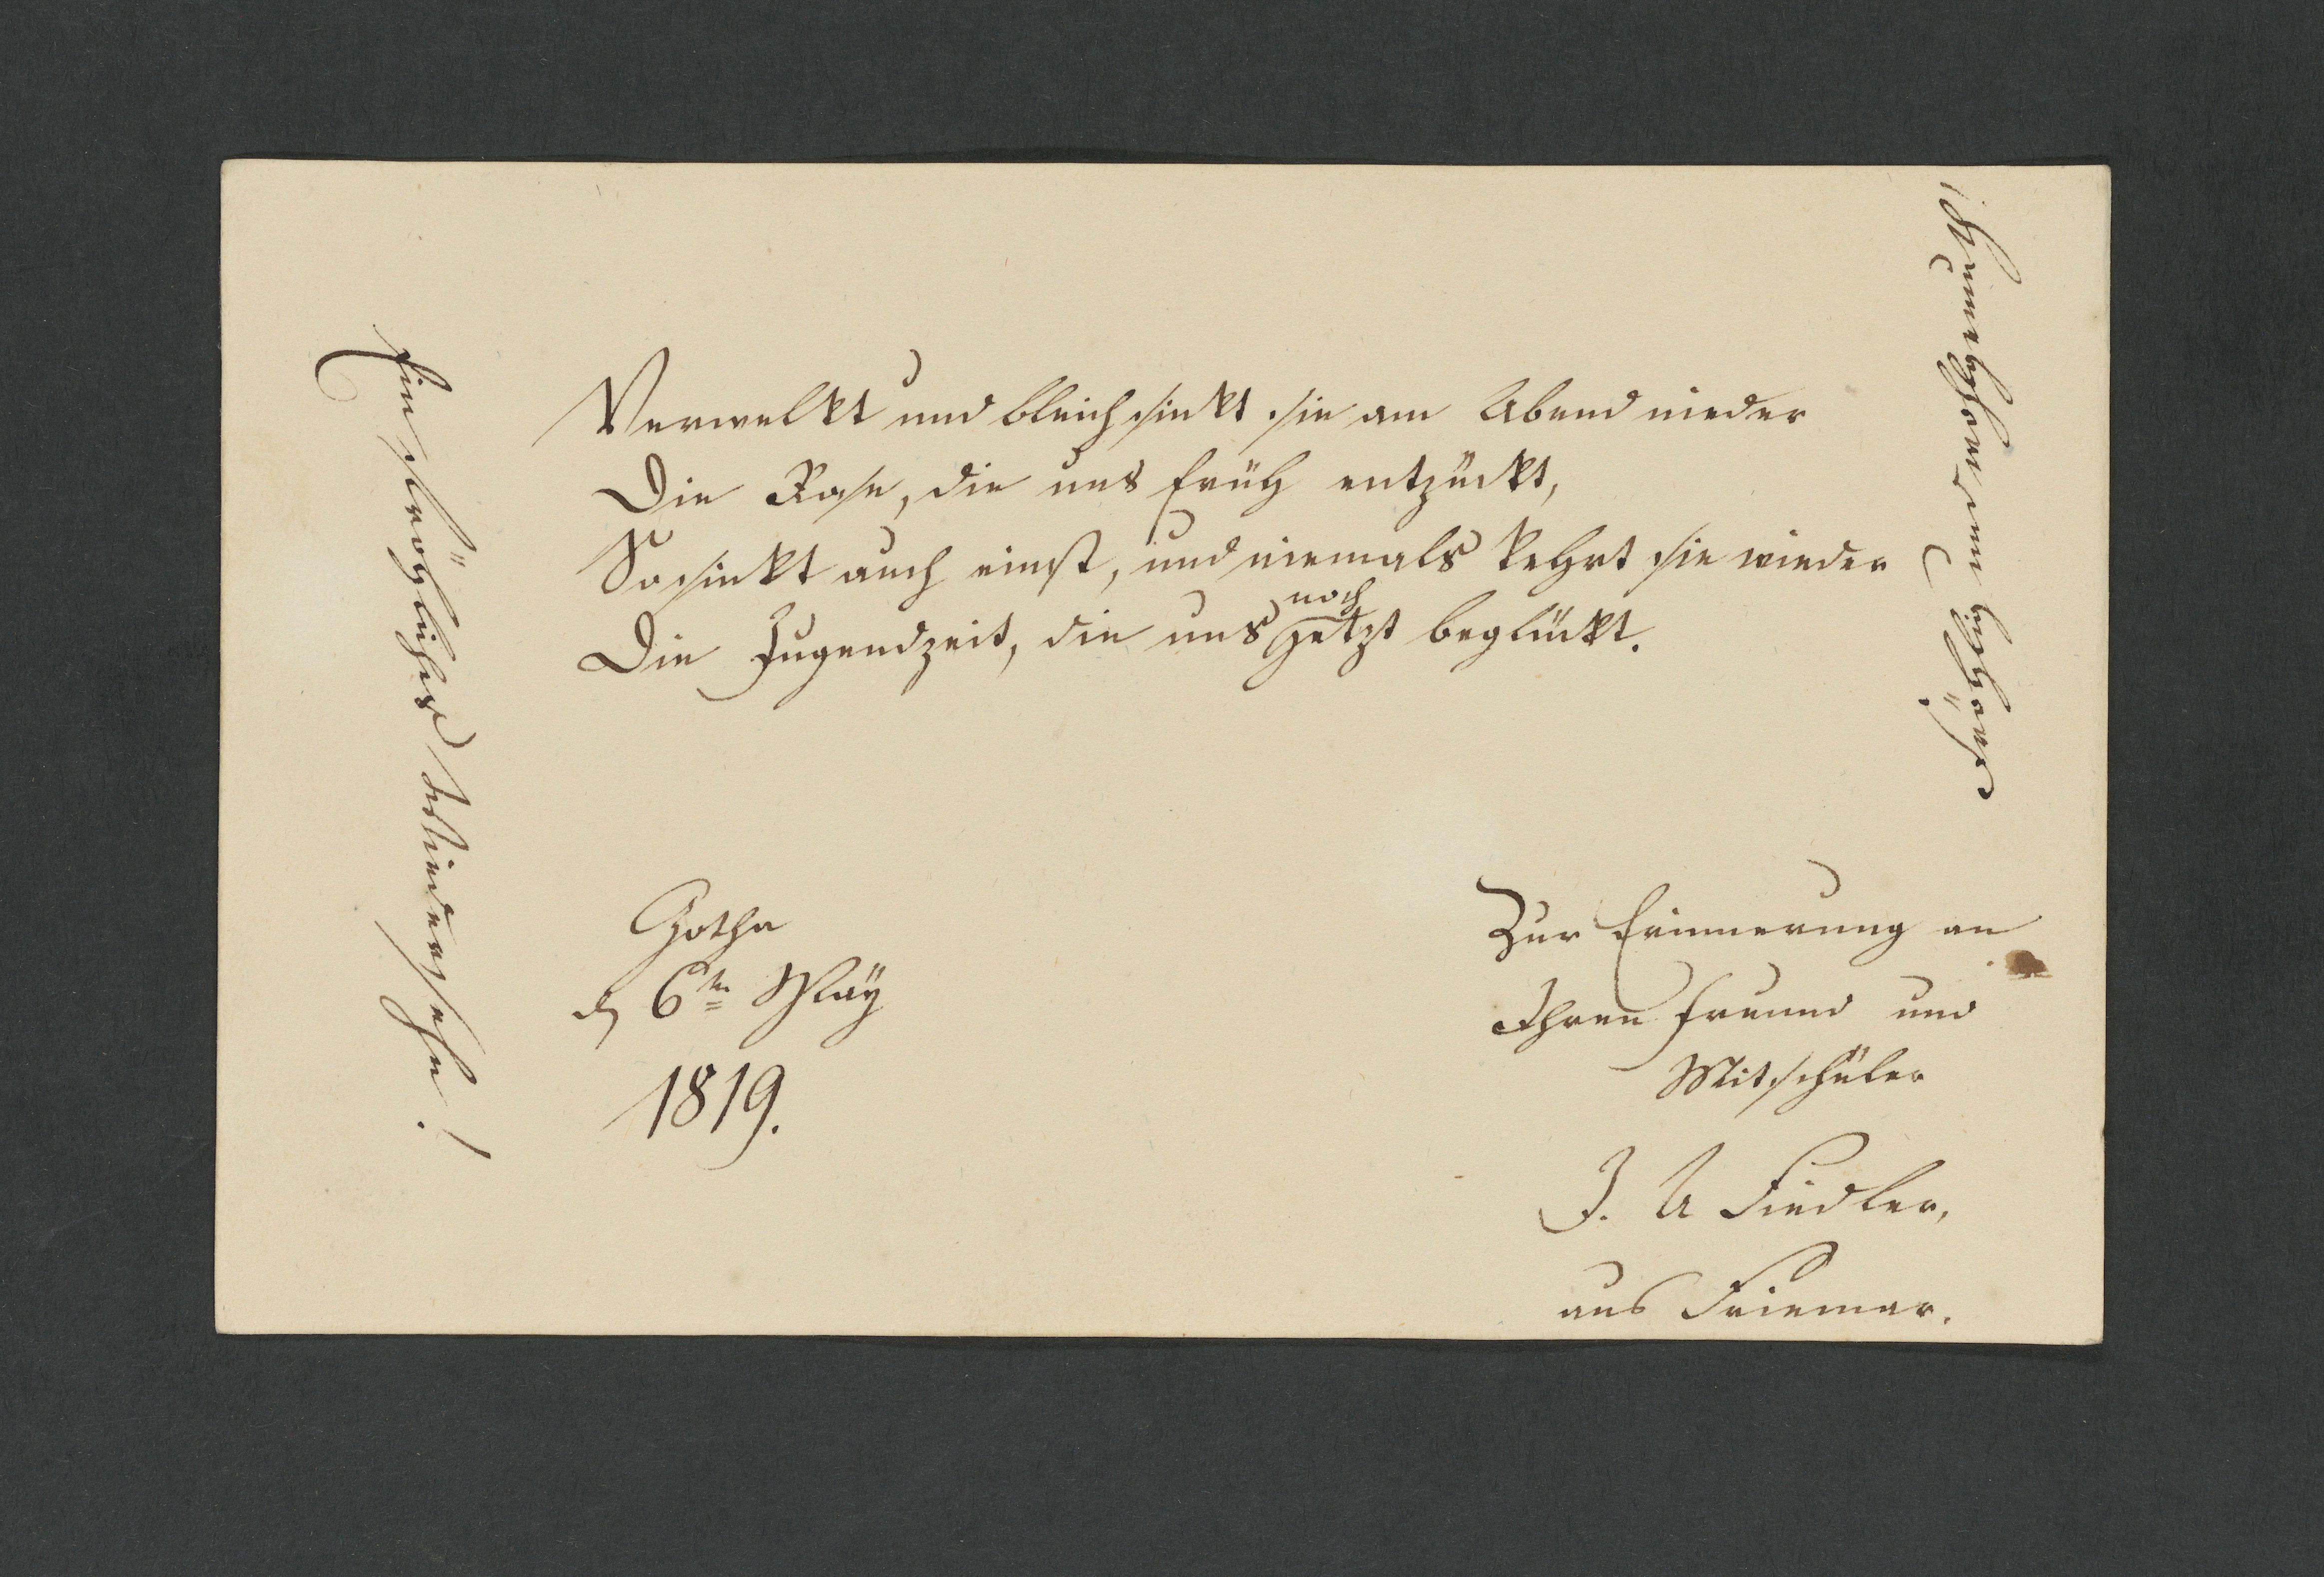 Verwelkt und bleich sinkt sie am Abend nieder
Die Rose, die uns früh entzückt,
So sinkt auch einst, und niemals kehrt sie wieder
noch
Die Jugendzeit, die uns jetzt beglückt.
Gotha
d 6tn Maÿ
1819.
Zur Erinnerung an
Ihren Freund und
Mitschüler
J. A Fiedler,
aus Friemar.
Ein fröhliches Wiedersehn!
Fröhlich und wohlgemuth!